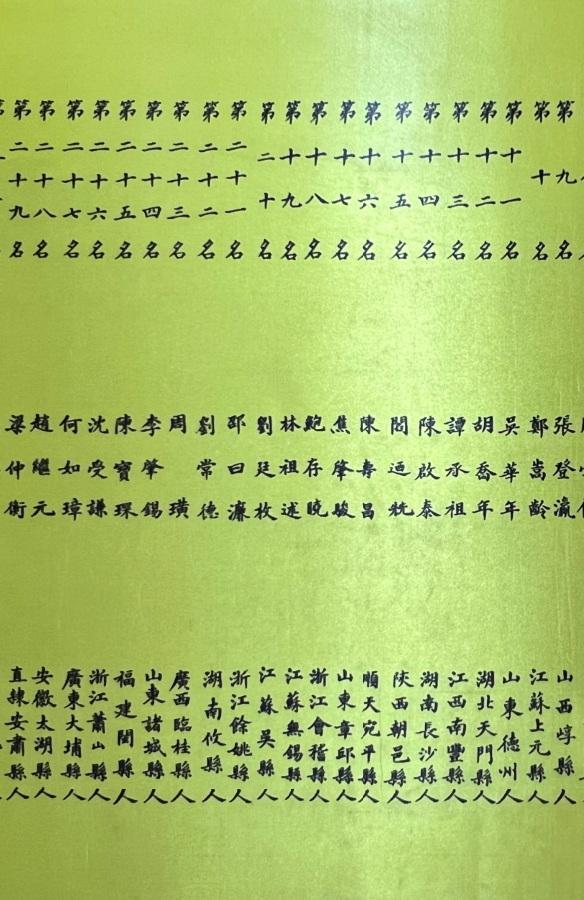 第九名 張登瀛 山西崞縣人
第十名 鄭嵩齡 江蘇上元縣人
第十一名 吳華年 山東德州人
第十二名 胡喬年 湖北天門縣人
第十三名 譚承祖 江西南豐縣人
第十四名 陳啟泰 湖南長沙縣人
第十五名 閻迺兟 陝西朝邑縣人
第十六名 陳壽昌 順天宛平縣人
第十七名 焦肇駿 山東章邱縣人
第十八名 鮑存曉 浙江會稽縣人
第十九名 林祖述 江蘇無錫縣人
第二十名 劉廷枚 江蘇吳縣人
第二十一名 邵曰濂 浙江餘姚縣人
第二十二名 劉常德 湖南攸縣人
第二十三名 周璜 廣西臨桂縣人
第二十四名 李肇錫 山東諸城縣人
第二十五名 陳寶琛 福建閩縣人
第二十六名 沈受謙 浙江蕭山縣人
第二十七名 何如璋 廣東大埔縣人
第二十八名 趙繼元 安徽太湖縣人
第二十九名 梁仲衡 直隸安肅縣人